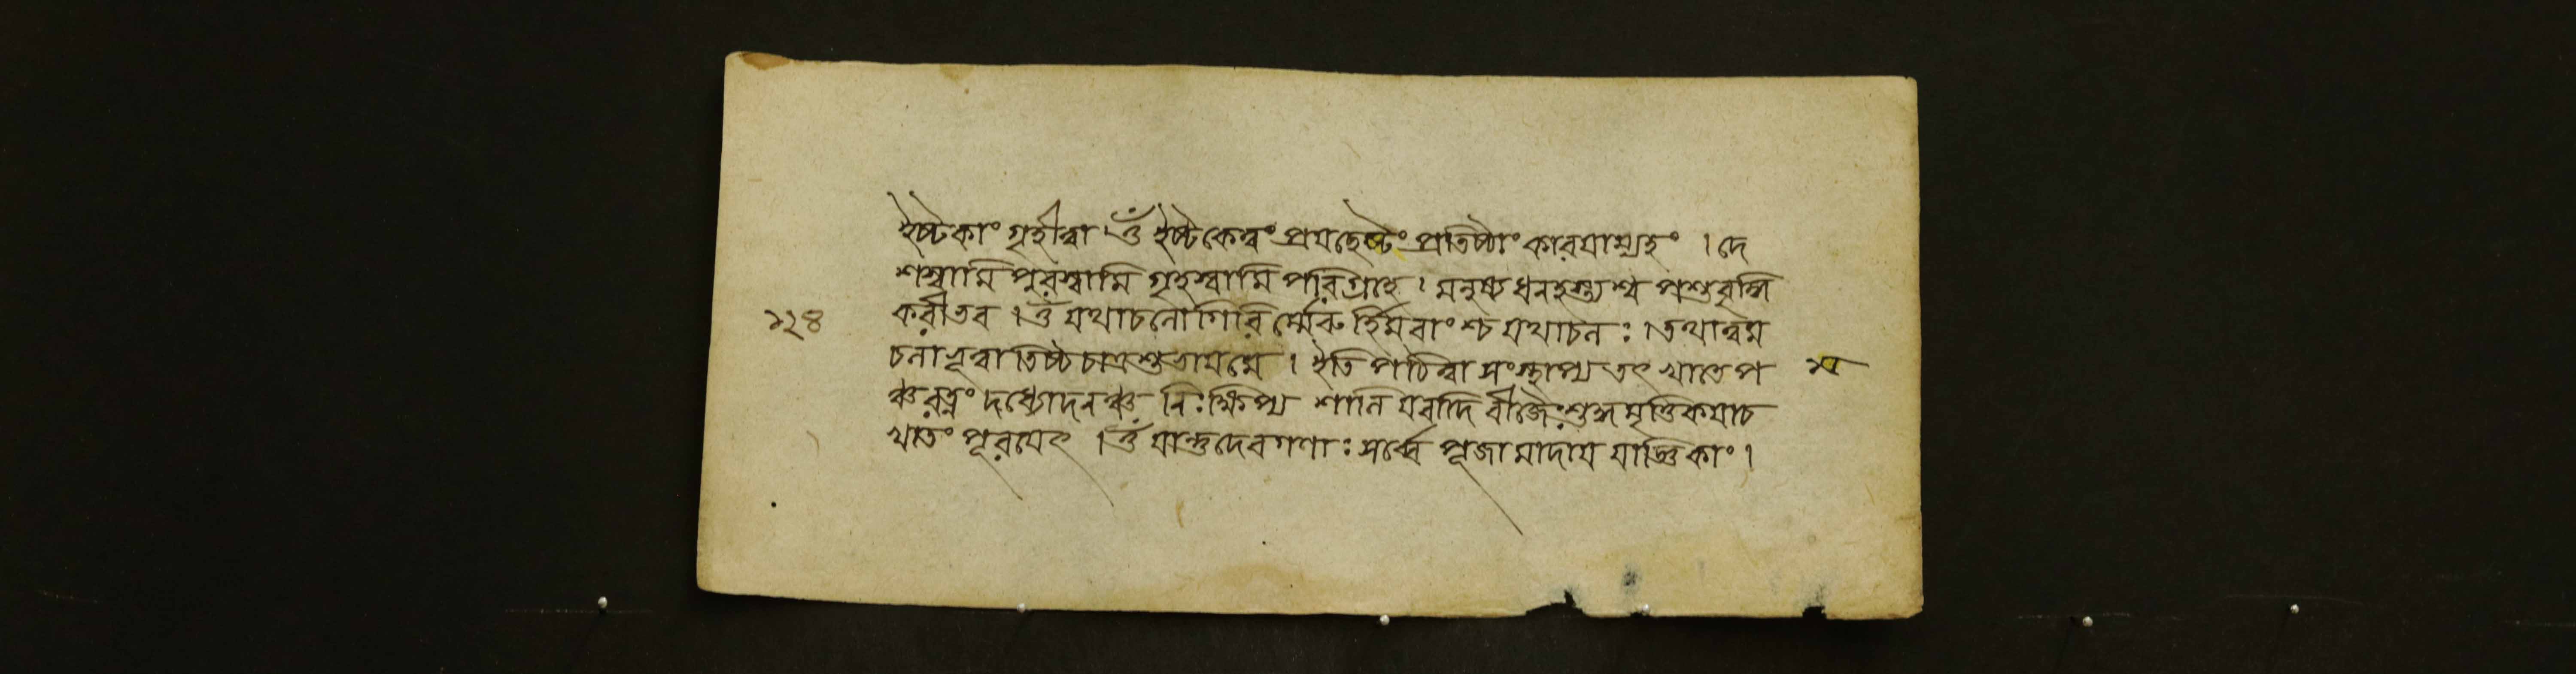 ইষ্টকাং গৃহীত্বা ।ওঁ ইষ্টকেত্বং প্ৰযচ্ছেষ্টং প্ৰতিষ্ঠাং কাৰযাম্যহং । দে
শস্বামি পুৰস্বামি গৃহস্বামি পৰিগ্ৰহে । মনুষ্য ধন হস্ত্যশ্ব পশুবৃদ্ধি
কৰীতব ।ওঁ যথাচলোগিৰিৰ্ম্মেৰু ৰ্হিমবাংশ্চ যথাচলঃ ।তথাত্বম
১২৪
চলাভূত্বা তিষ্ঠচাত্ৰশুভাযমে । ইতি পঠিত্বা সংস্থাপ্য তৎ খাতে প
ঞ্চৰত্নং দধ্যোদনঞ্চ নিঃক্ষিপ্য শালি যবাদি বীজৈঃ শুদ্ধমৃত্তিকযাচ
খাতং পূৰযেৎ ।ওঁ যান্তুদেবগণাঃ সৰ্ব্বে পূজামাদায যাজ্ঞিকাং ।